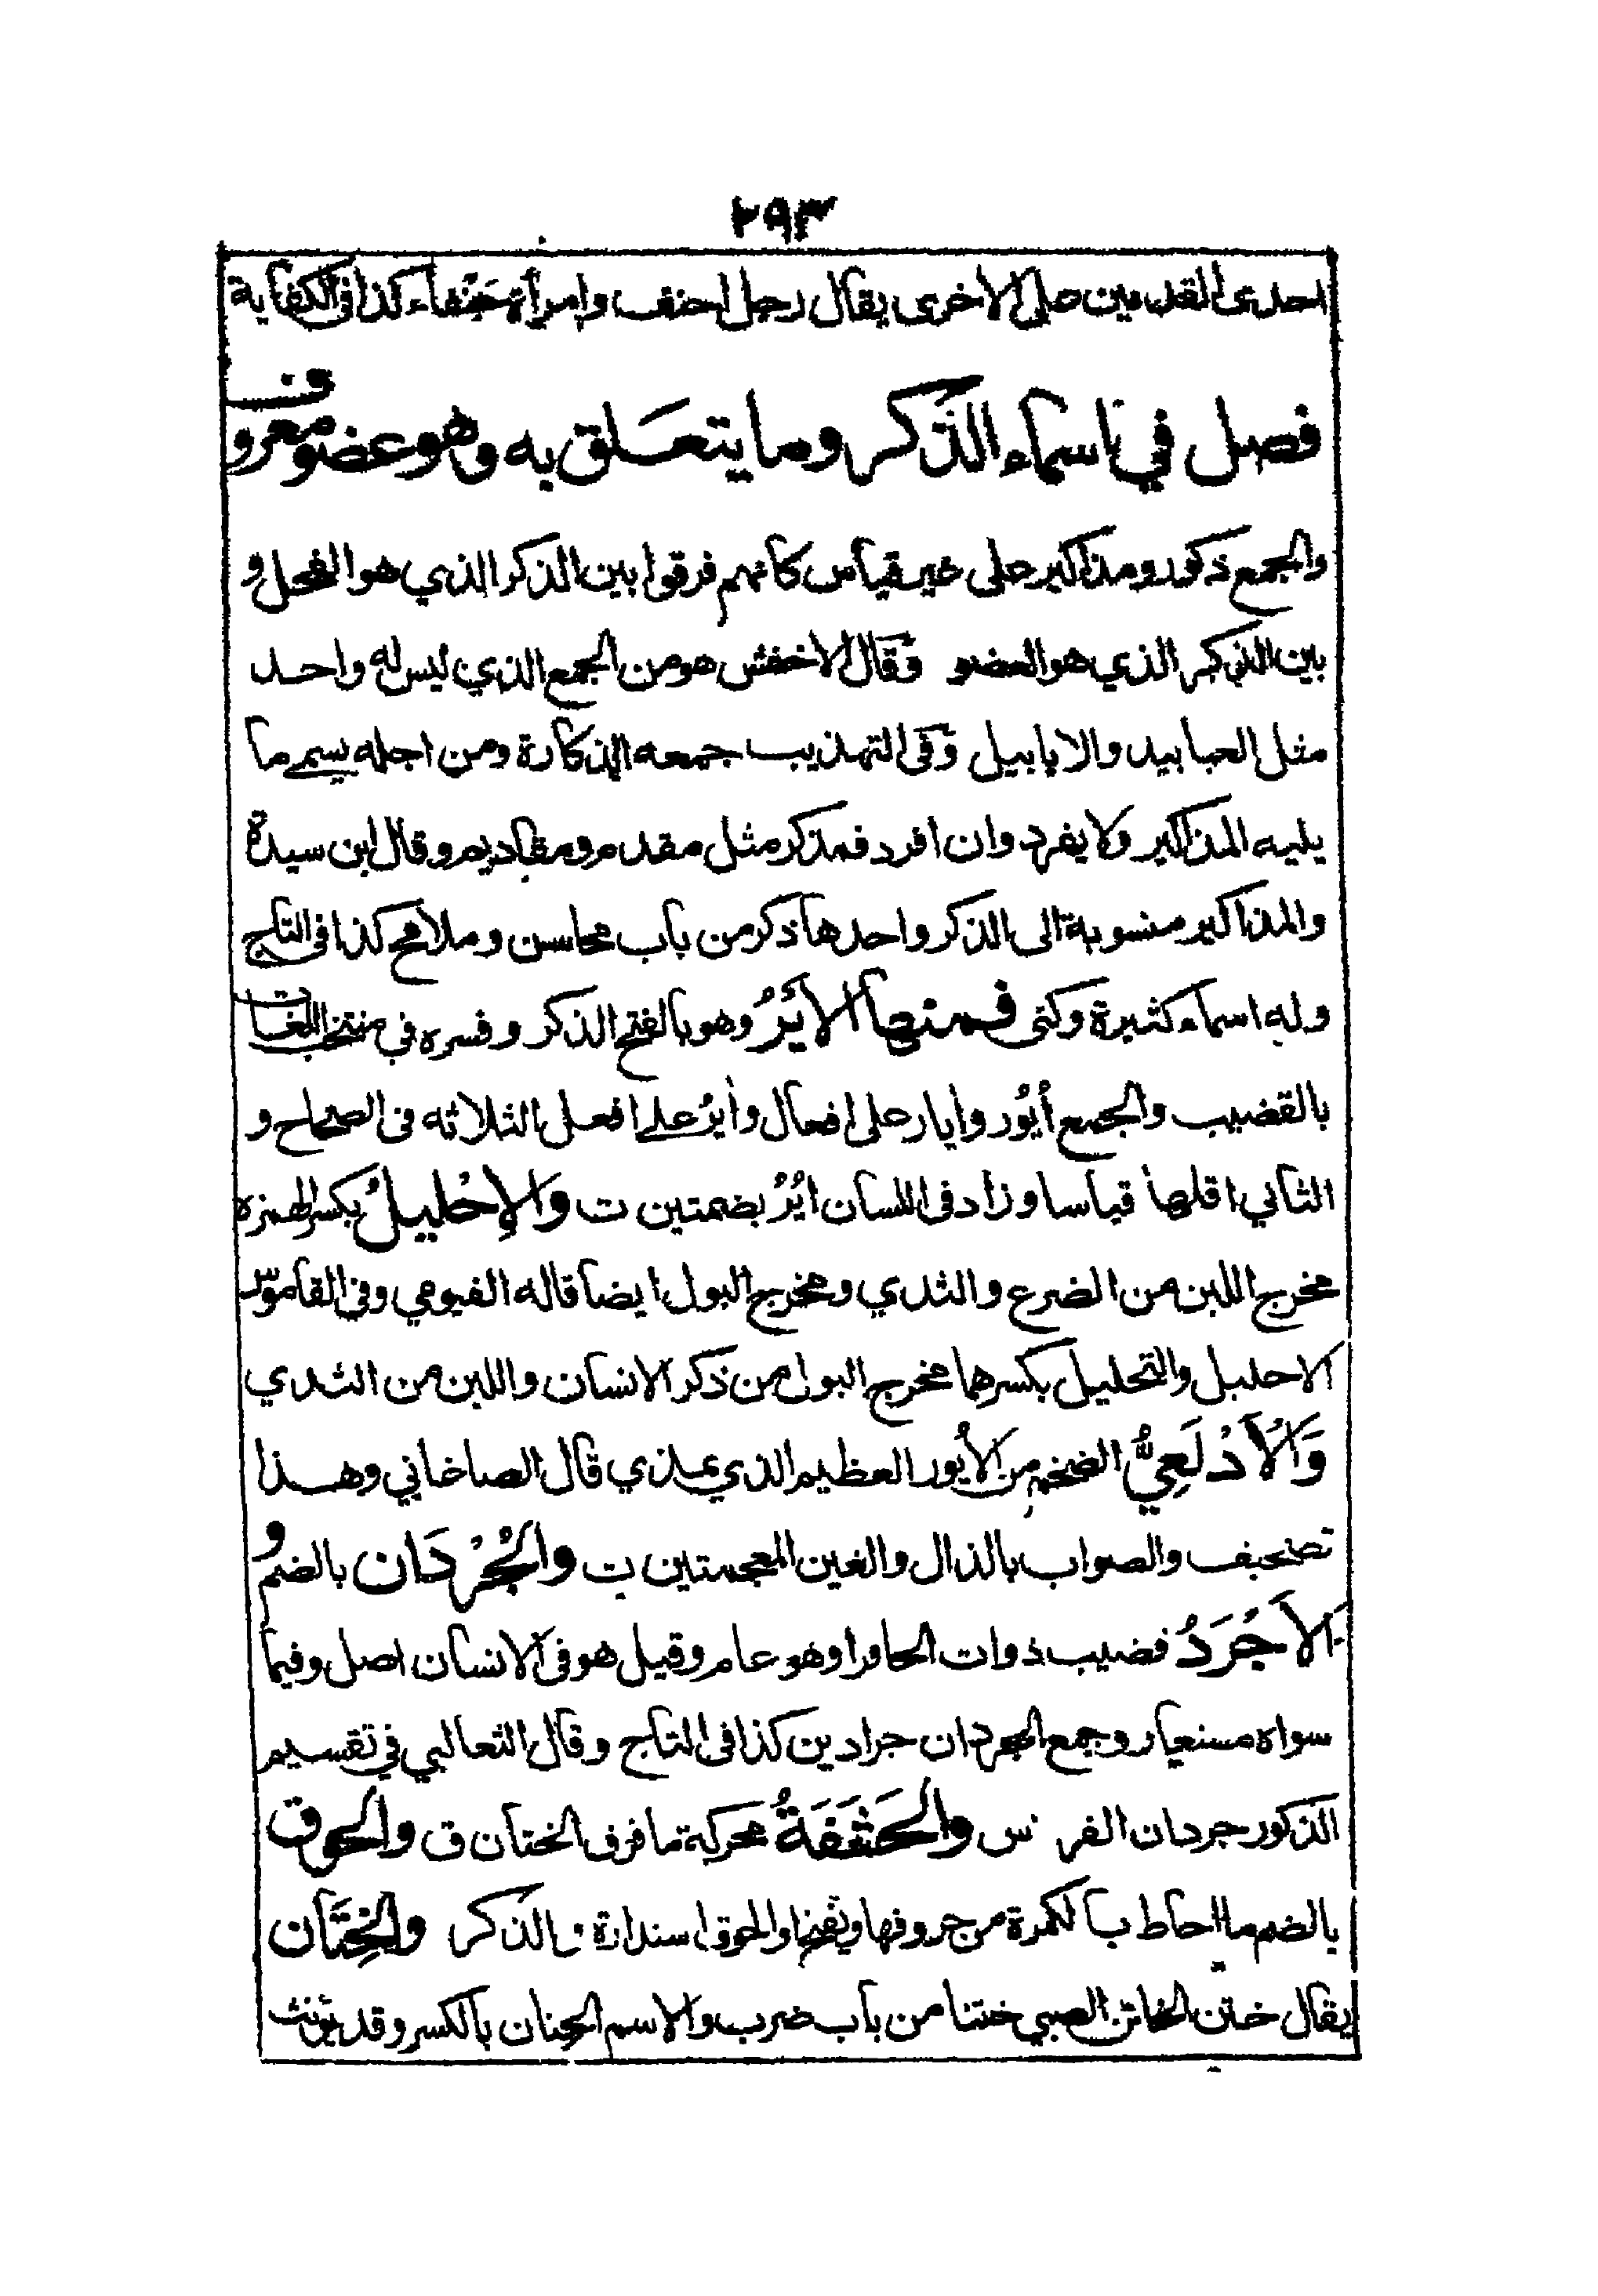 ٢٩٣
احدى القدمين على الاخرى يقال رجل احنف وامرأة حَنْفاء كذا فى الكفاية
فصل في اسماء الذَّكر وما يتعلق به وهو عضو معروف
والجمع ذكور ومذاكير على غير قياس كانهم فرقوا بين الذكر الذي هو الفحل و
بين الذكر الذي هو العضو وقال الاخفش هو من الجمع الذي ليس له واحد
مثل العبابيد والابابيل وفى التهذيب جمعه الذكارة ومن اجله يسمى ما
يليه المذاكير ولا يفرد وان افرد فمذكر مثل مقدم ومقاديم وقال ابن سيدة
والمذاكير منسوبة الى الذكر واحدها ذكر من باب محاسن وملامح كذا فى التاج
وله اسماء كثيرة وكنى فمنها الأَيْرُ وهو بالفتح الذكر وفسره في منتخب اللغات
بالقضيب والجمع أيُور وايار على افعال وايُرُ على افعل الثلاثه فى الصحاح و
الثاني اقلها قياسا وزاد فى اللسان ايُرُ بضمتين ت والإحْليلُ بكسر الهمزه
مخرج اللبن من الضرع والثدي ومخرج البول ايضا قاله الفيومي وفى القاموس
الاحليل والتحليل بكسرهما مخرج البول من ذكر الانسان واللبن من الثدي
وَالأَذْلَعِيُّ الضخم من الأيور العظيم الذي يمذي قال الصاغاني وهذا
تصحيف والصواب بالذال والغين المعجمتين ت والجُرْدَان بالضم و
الأَجْرَدُ قضيب ذوات الحافر او هو عام وقيل هو فى الانسان اصل وفيما
سواه مستعار وجمع الجردان جرادين كذا فى التاج وقال الثعالبي في تقسيم
الذكور جردان الفرس والحَشَفَةُ محركة ما فوق الختان ق والحوق
بالضم ما احاط بالكمرة من حروفها ويفتح او الحوق استدارة بالذكر والخِتَان
يقال ختن الخاتن الصبي ختنا من باب ضرب والاسم الختان بالكسر وقد يؤنث